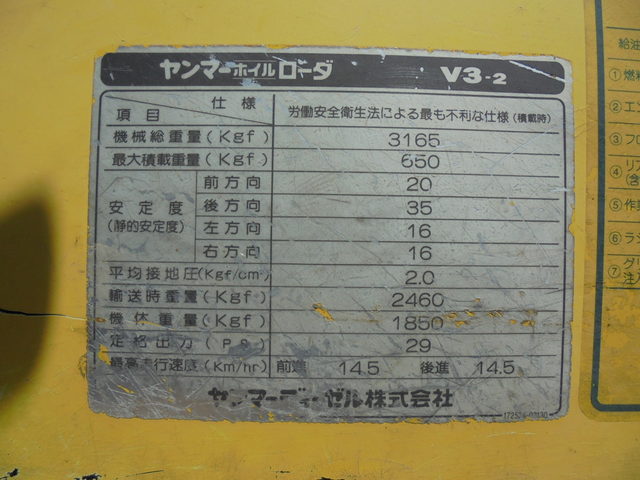 ヤンマーホイルローダ V3-2
仕様
項目
労働安全衛生法による最も不利な仕様(積載時)
機械総重量(Kgf) 3165
最大積載重量(Kgf) 650
安定度
(静的安定度)
前方向 20
後方向 35
左方向 16
右方向 16
平均接地圧(Kgf/cm²) 2.0
輸送時重量(Kgf) 2460
機体重量(Kgf) 1850
定格出力(PS) 29
最高走行速度(Km/hr) 前進 14.5 後進 14.5
ヤンマーディーゼル株式会社
給油
①燃料
②エ
③フロ
④リア
(含
⑤作
⑥ラジ
⑦グリ
注入